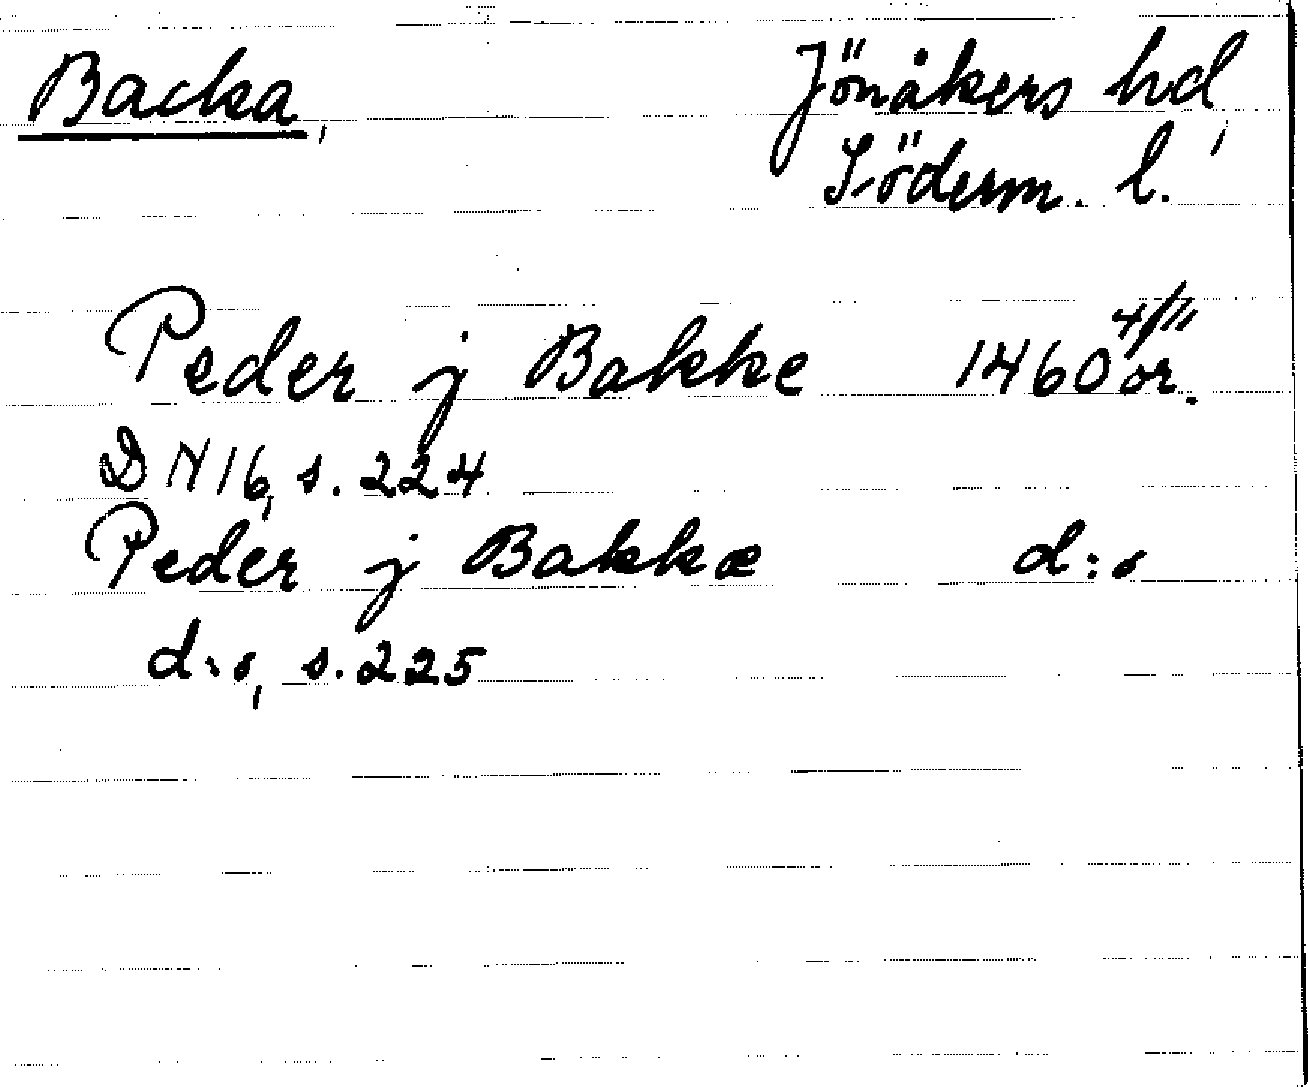 Backa, Jönåkers hd,
Söderm. l.
Peder j Bakke 1460 4/11 or.
DN 16, s. 224
Peder j Bakkæ d:o
d:o, s. 225